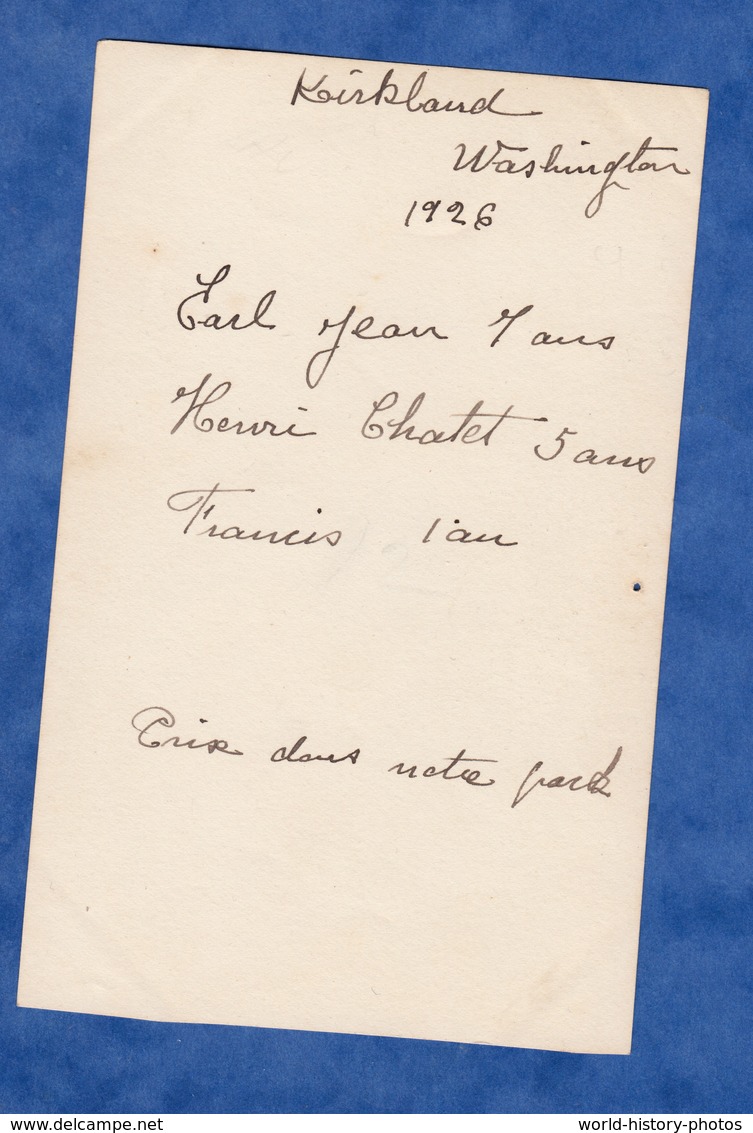 Kirkland
Washington
1926
Earl Jean 7 ans
Henri Chatet 5 ans
Francis 1 an
Prix dans notre park
world-history-photos